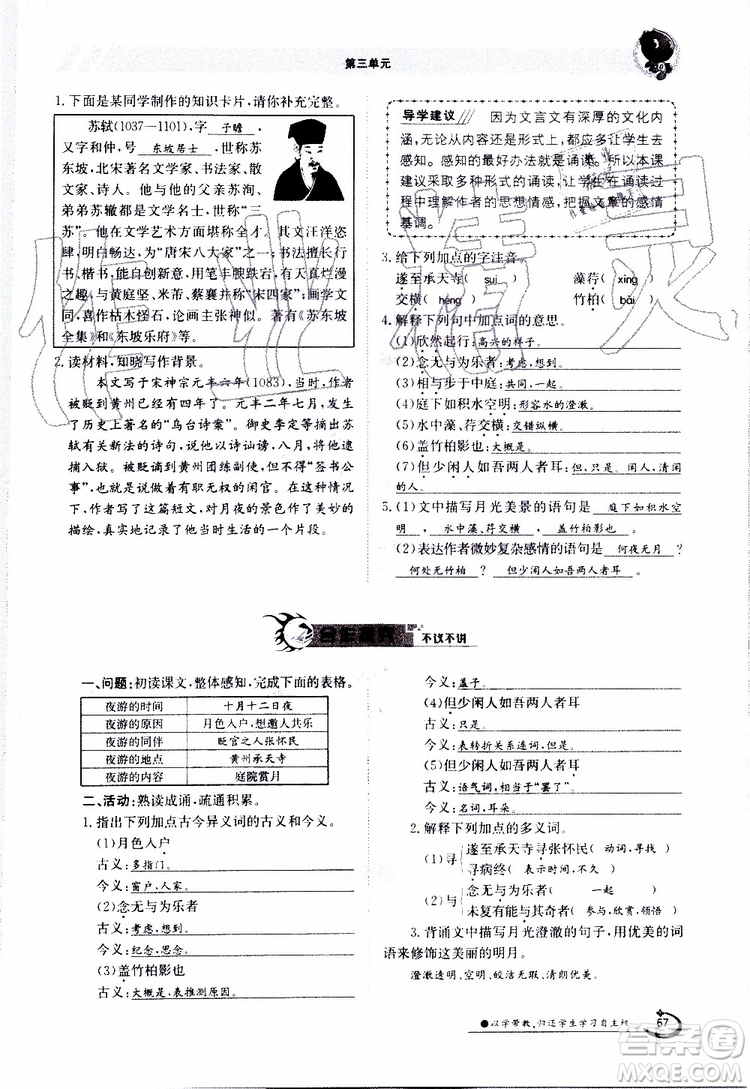 第三单元
1.下面是某同学制作的知识卡片,请你补充完整。
苏轼(1037—1101),字 子瞻
,又字和仲,号 东坡居士 ,世称苏
东坡,北宋著名文学家、书法家、散
文家、诗人。他与他的父亲苏洵、
弟弟苏辙都是文学名士,世称“三
苏”。他在文学艺术方面堪称全才,其文汪洋恣肆,
明畅达,为“唐宋八大家”之一;书法擅长行书、
楷书,能自创新意,用笔丰腴跌宕,有天真烂漫
之趣,与黄庭坚、米芾、蔡襄并称“宋四家”;画学文
同,喜作枯木怪石,论画主张神似。著有《苏东坡
全集》和《东坡乐府》等。
2.读材料,知晓写作背景。
本文写于宋神宗元丰六年(1083),当时,作者
被贬到黄州已经有四年了。元丰二年七月,发生
了历史上著名的“乌台诗案”。御史李定等人摘出苏
轼有关新法的诗句,说他以诗讪谤,八月,将他逮
捕入狱。后被贬谪到黄州任团练副使,但不得“签书公
事”,也就是做着有职无权的闲官。在这种情况下,
作者写了这篇短文,对月夜的景色作了美妙的
描绘,真实地记录了他当时生活的一个片段。
导学建议 因为文言文有深厚的文化内
涵,无论从内容还是形式上,都要让学生去
感知。感知的最好办法就是诵读。所以本课
建议采取多种形式的诵读,让学生在反复诵读
过程中理解作者的思想情感,把握文章的感情
基调。
3.给下列加点的字注音。
遂至承天寺( suì ) 藻荇( xìng )
交横( héng ) 竹柏( bǎi )
4.解释下列句中加点词的意思。
(1)欣然起行:高兴的样子。
(2)念无与为乐者:考虑,想到。
(3)相与步于中庭:共同,一起。
(4)庭下如积水空明:形容水的澄澈。
(5)水中藻、荇交横:交错纵横。
(6)盖竹柏影也:大概是。
(7)但少闲人如吾两人者耳:但,只是。闲人,清闲
的人。
5.(1)文中描写月光美景的语句是 庭下如积水空
明 , 水中藻、荇交横 , 盖竹柏影也 。
(2)表达作者微妙复杂感情的语句是 何夜无月 ?
何处无竹柏 ? 但少闲人如吾两人者耳 。
不议不讲
一、问题:初读课文,整体感知,完成下面的表格。
夜游的时间 十月十二日夜
夜游的原因 月色入户,想邀人共乐
夜游的同伴 贬官之人张怀民
夜游的地点 黄州承天寺
夜游的内容 庭院赏月
二、活动:熟读成诵,疏通积累。
1.指出下列加点古今异义词的古义和今义。
(1)月色入户
古义:多指门。
今义:窗户,人家。
(2)念无与为乐者
古义:考虑,想到。
今义:纪念,思念。
(3)盖竹柏影也
古义:大概是,表推测原因。
今义:盖子。
(4)但少闲人如吾两人者耳
古义:只是。
今义:表转折关系连词,但是。
(5)但少闲人如吾两人者耳
古义:语气词,相当于“罢了”。
今义:名词,耳朵。
2.解释下列加点的多义词。
(1)寻 遂至承天寺寻张怀民( 动词,寻找 )
寻病终( 表示时间,不久 )
(2)与 念无与为乐者( 一起 )
未复有能与其奇者( 参与,欣赏,领悟 )
3.背诵文中描写月光澄澈的句子,用优美的词
语来修饰这美丽的明月。
澄澈透明、空明、皎洁无瑕、清朗优美。
●以学带教,归还学生学习自主权
67